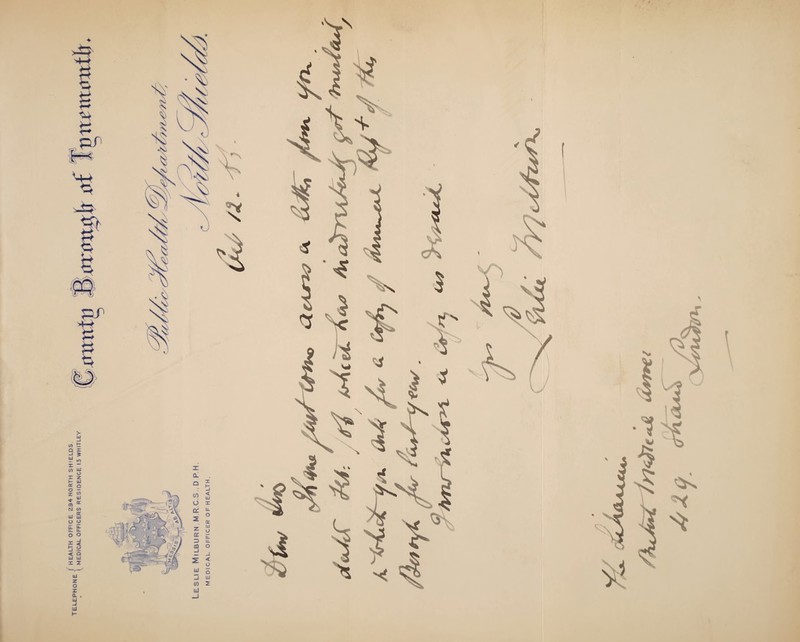 County Borough of Tynemouth.
TELEPHONE { HEALTH OFFICE 284 NORTH SHIELDS.
MEDICAL OFFICERS RESIDENCE 13 WHITLEY
Public Health Department,
North Shields.
LESLIE MILBURN M.R.C.S., D.P.H.
MEDICAL OFFICER OF HEALTH.
Oct 12.
Dear Sirs
I have just come across a letter from you
dated Feb: which has inadvertently got mislaid,
in which you ask for a copy of Annual Rept of this
Borough for last year.
I now enclose a copy as desired.
yrs truly
Leslie Milburn
The Librarian
British Medical Assoc
429. Strand
London.